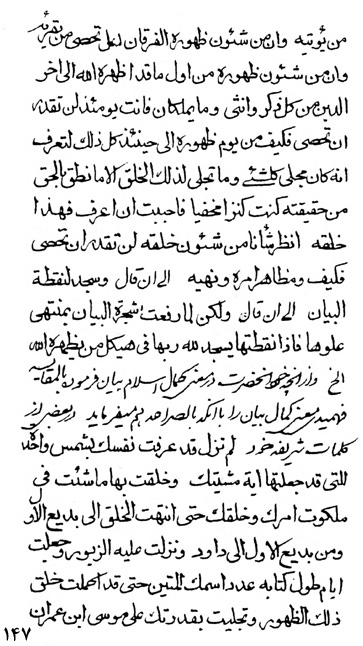 من يؤتيه وان من شئون ظهوره الفرقان لعل تحصى من تقرئه
وان من شئون ظهوره من اول ما قد اظهره الله الى اخر
الذين من كل ذكر وانثى وما يملكان فانت يومئذ لن تقدر
ان تحصى فكيف من يوم ظهوره الى حينئذ كل ذلك لتعرف
انه كان مجلى كلشئ وما تجلى لذلك الخلق الا ما نطق بالحق
من حقيقته كنت كنزا مخفيا فاحببت ان اعرف فهذا
خلقه انظر شأنا من شئون خلقه لن تقدر ان تحصى
فكيف ومظاهر امره ونهيه الى ان قال وسجد لنقطة
البيان الى ان قال ولكن لما رفعت شجرة البيان بمنتهى
علوها فاذا نقطتها يسجد لله ربها فى هيكل من يظهره الله
الخ واز انچه خط انحضرت در معنى كمال اسلام بيان فرمودن بالمقايسه
فهميد معنى كمال بيان را با انكه بالصراحه هم ميفرمايد در بعضى از
كلمات شريفه خود لم نزل قد عرفت نفسك بشمس واحدة
التى قد جعلتها اية مشيتك وخلقت بها ما شئت فى
ملكوت امرك وخلقك حتى انتهت الخلق الى بديع الاول
ومن بديع الاول الى داود ونزلت عليه الزبور وجعلت
ايام طول كتابه عدد اسمك المتين حتى قد اكملت خلق
ذلك الظهور وتجليت بقدرتك على موسى ابن عمران
١٤٧